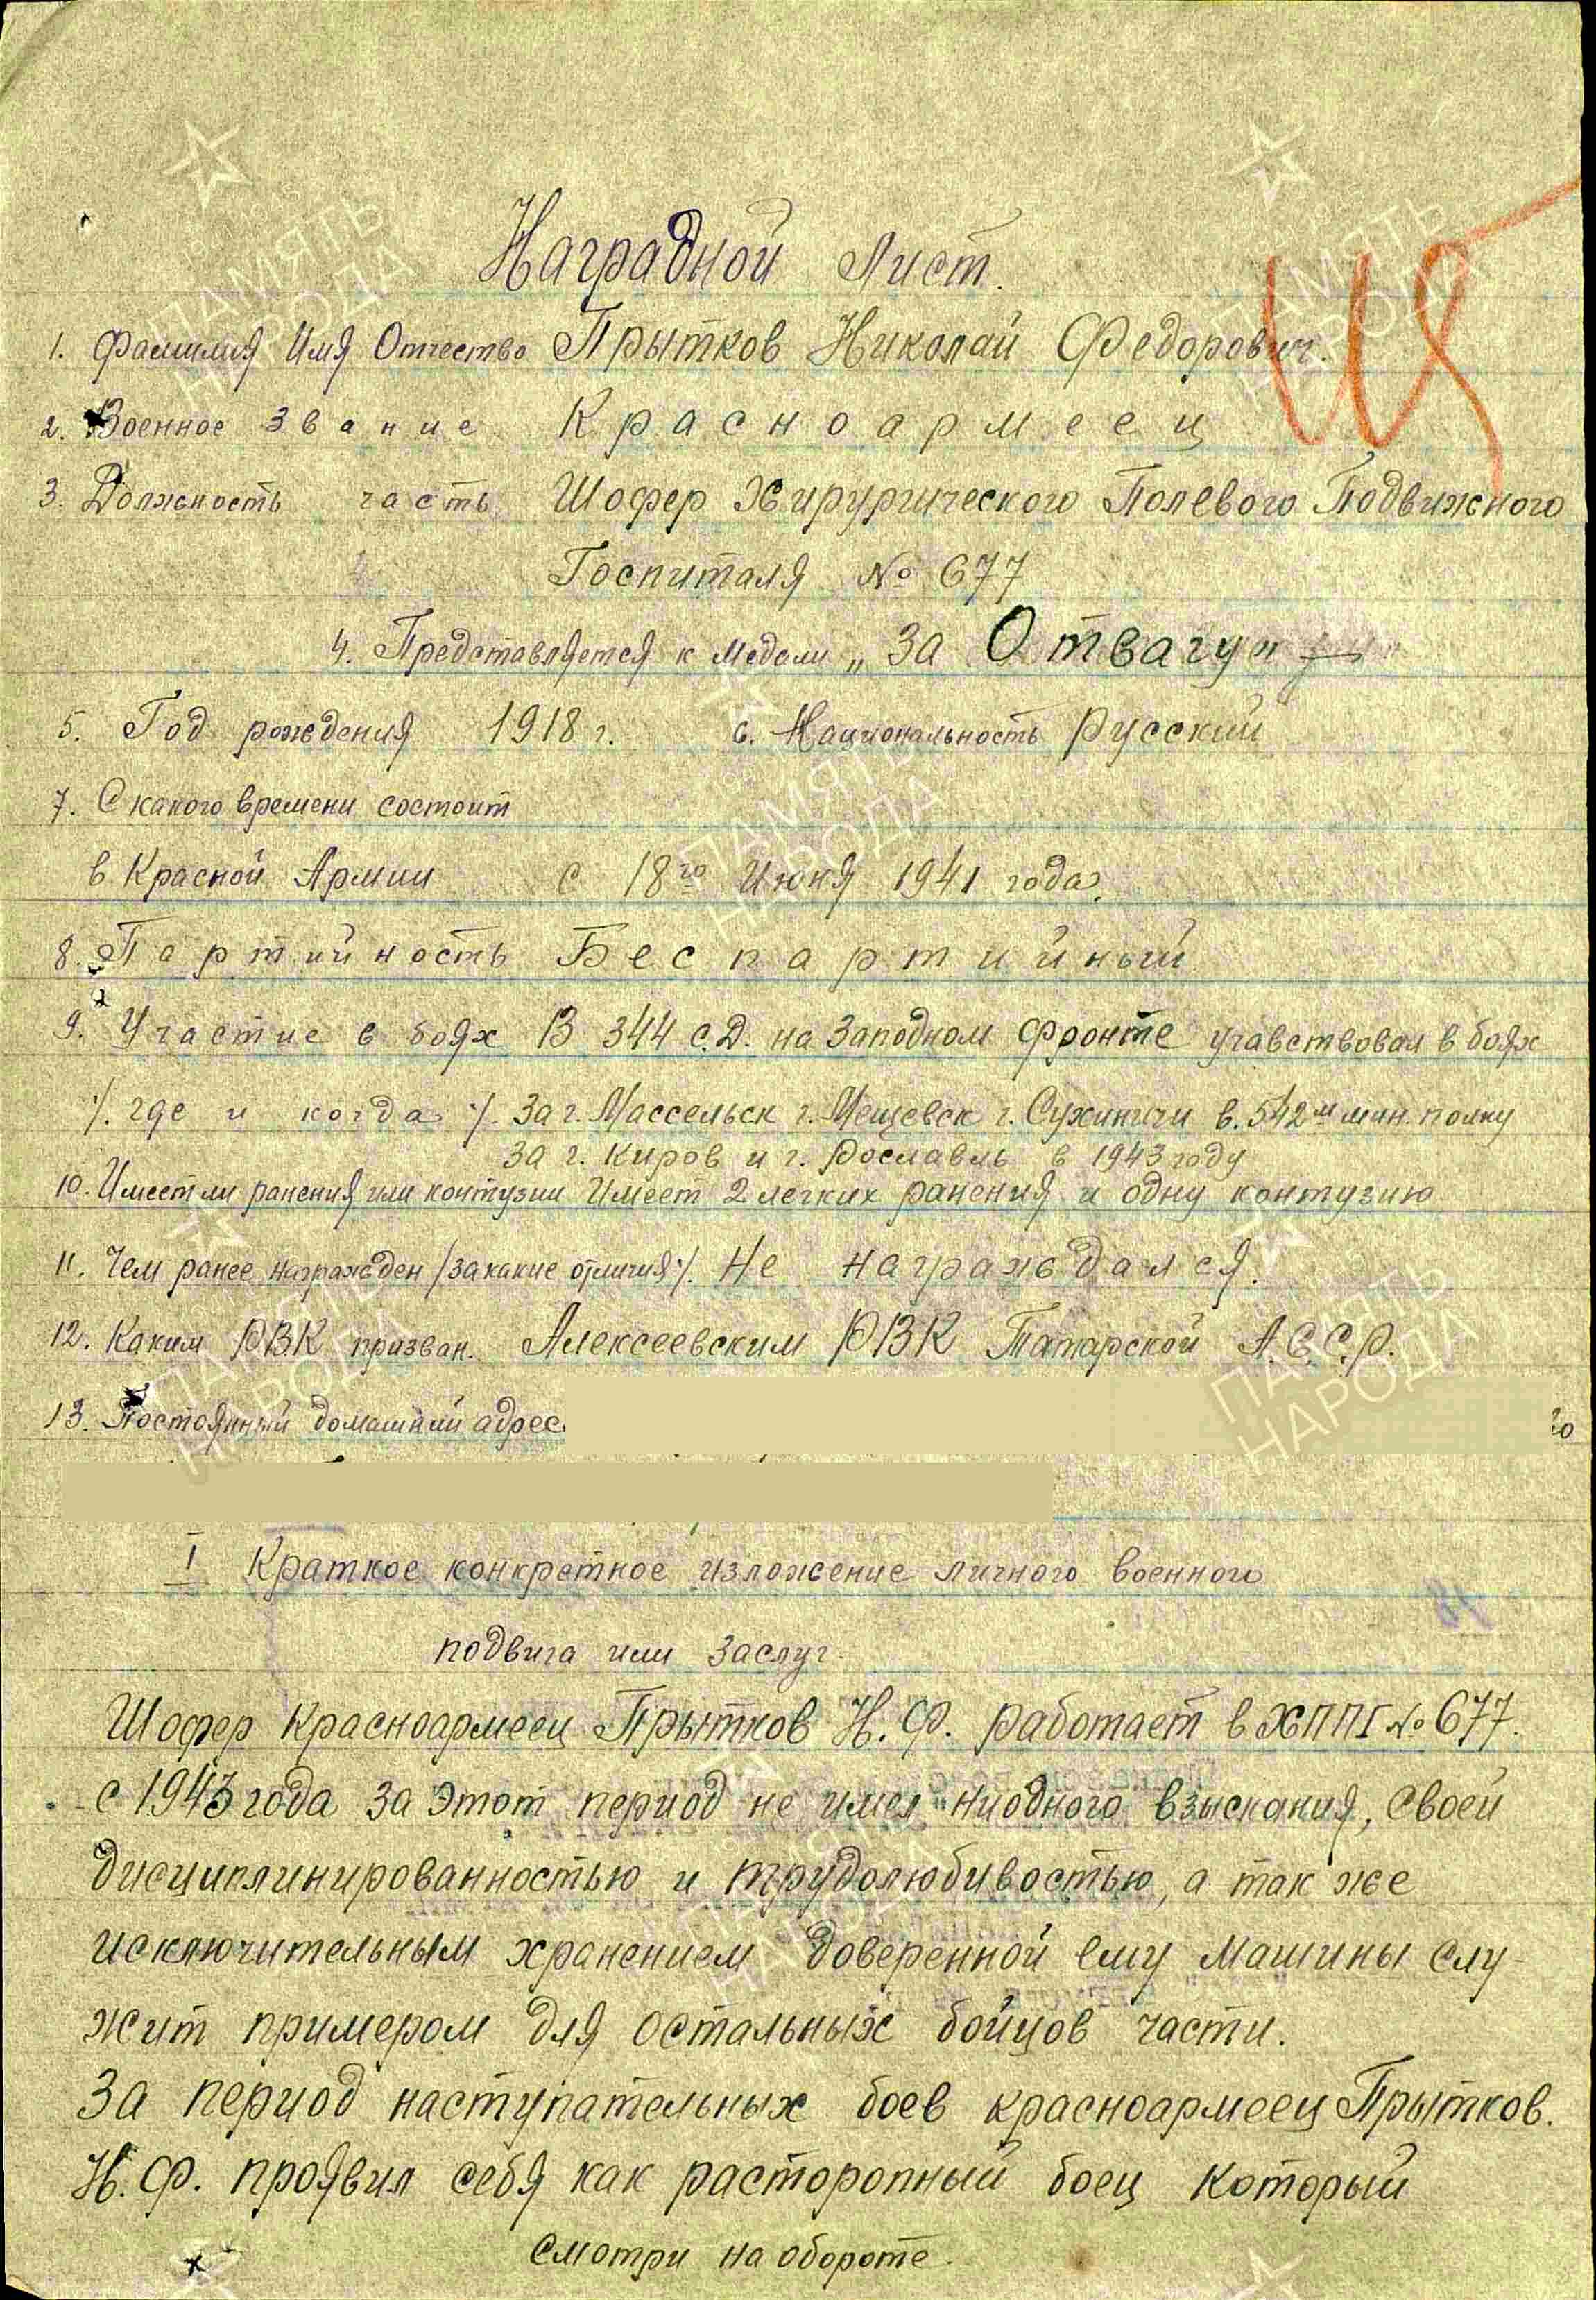 Наградной Лист.
1. Фамилия Имя Отчество Прытков Николай Федорович.
2. Военное звание Красноармеец
3. Должность часть Шофер Хирургического Полевого Подвижного
Госпиталя № 677
4. Представляется к медали „За Отвагу"
5. Год рождения 1918 г. 6. Национальность Русский
7. С какого времени состоит
в Красной Армии с 18го Июня 1941 года.
8. Партийность Беспартийный
9. Участие в боях В 344 с.Д. на Западном Фронте учавствовал в боях
/. где и когда /. За г. Массельск г. Мещевск г. Сухиничи в. 542м мин. полку
за г. Киров и г. Рославль в 1943 году
10. Имеет ли ранения или контузии Имеет 2 легких ранения и одну контузию
11. Чем ранее награжден /за какие отличия/. Не награждался.
12. Каким РВК призван. Алексеевским РВК Татарской А.С.С.Р.
13. Постоянный домашний адрес
го
I Краткое конкретное изложение личного военного
подвига или заслуг.
Шофер красноармеец Прытков Н.Ф. работает в ХППГ № 677.
с 1943 года за этот период не имел ниодного взыскания, своей
дисциплинированностью и трудолюбивостью, а так же
исключительным хранением доверенной ему машины слу-
жит примером для остальных бойцов части.
За период наступательных боев красноармеец Прытков.
Н.Ф. проявил себя как расторопный боец который
смотри на обороте.
ПАМЯТЬ
НАРОДА